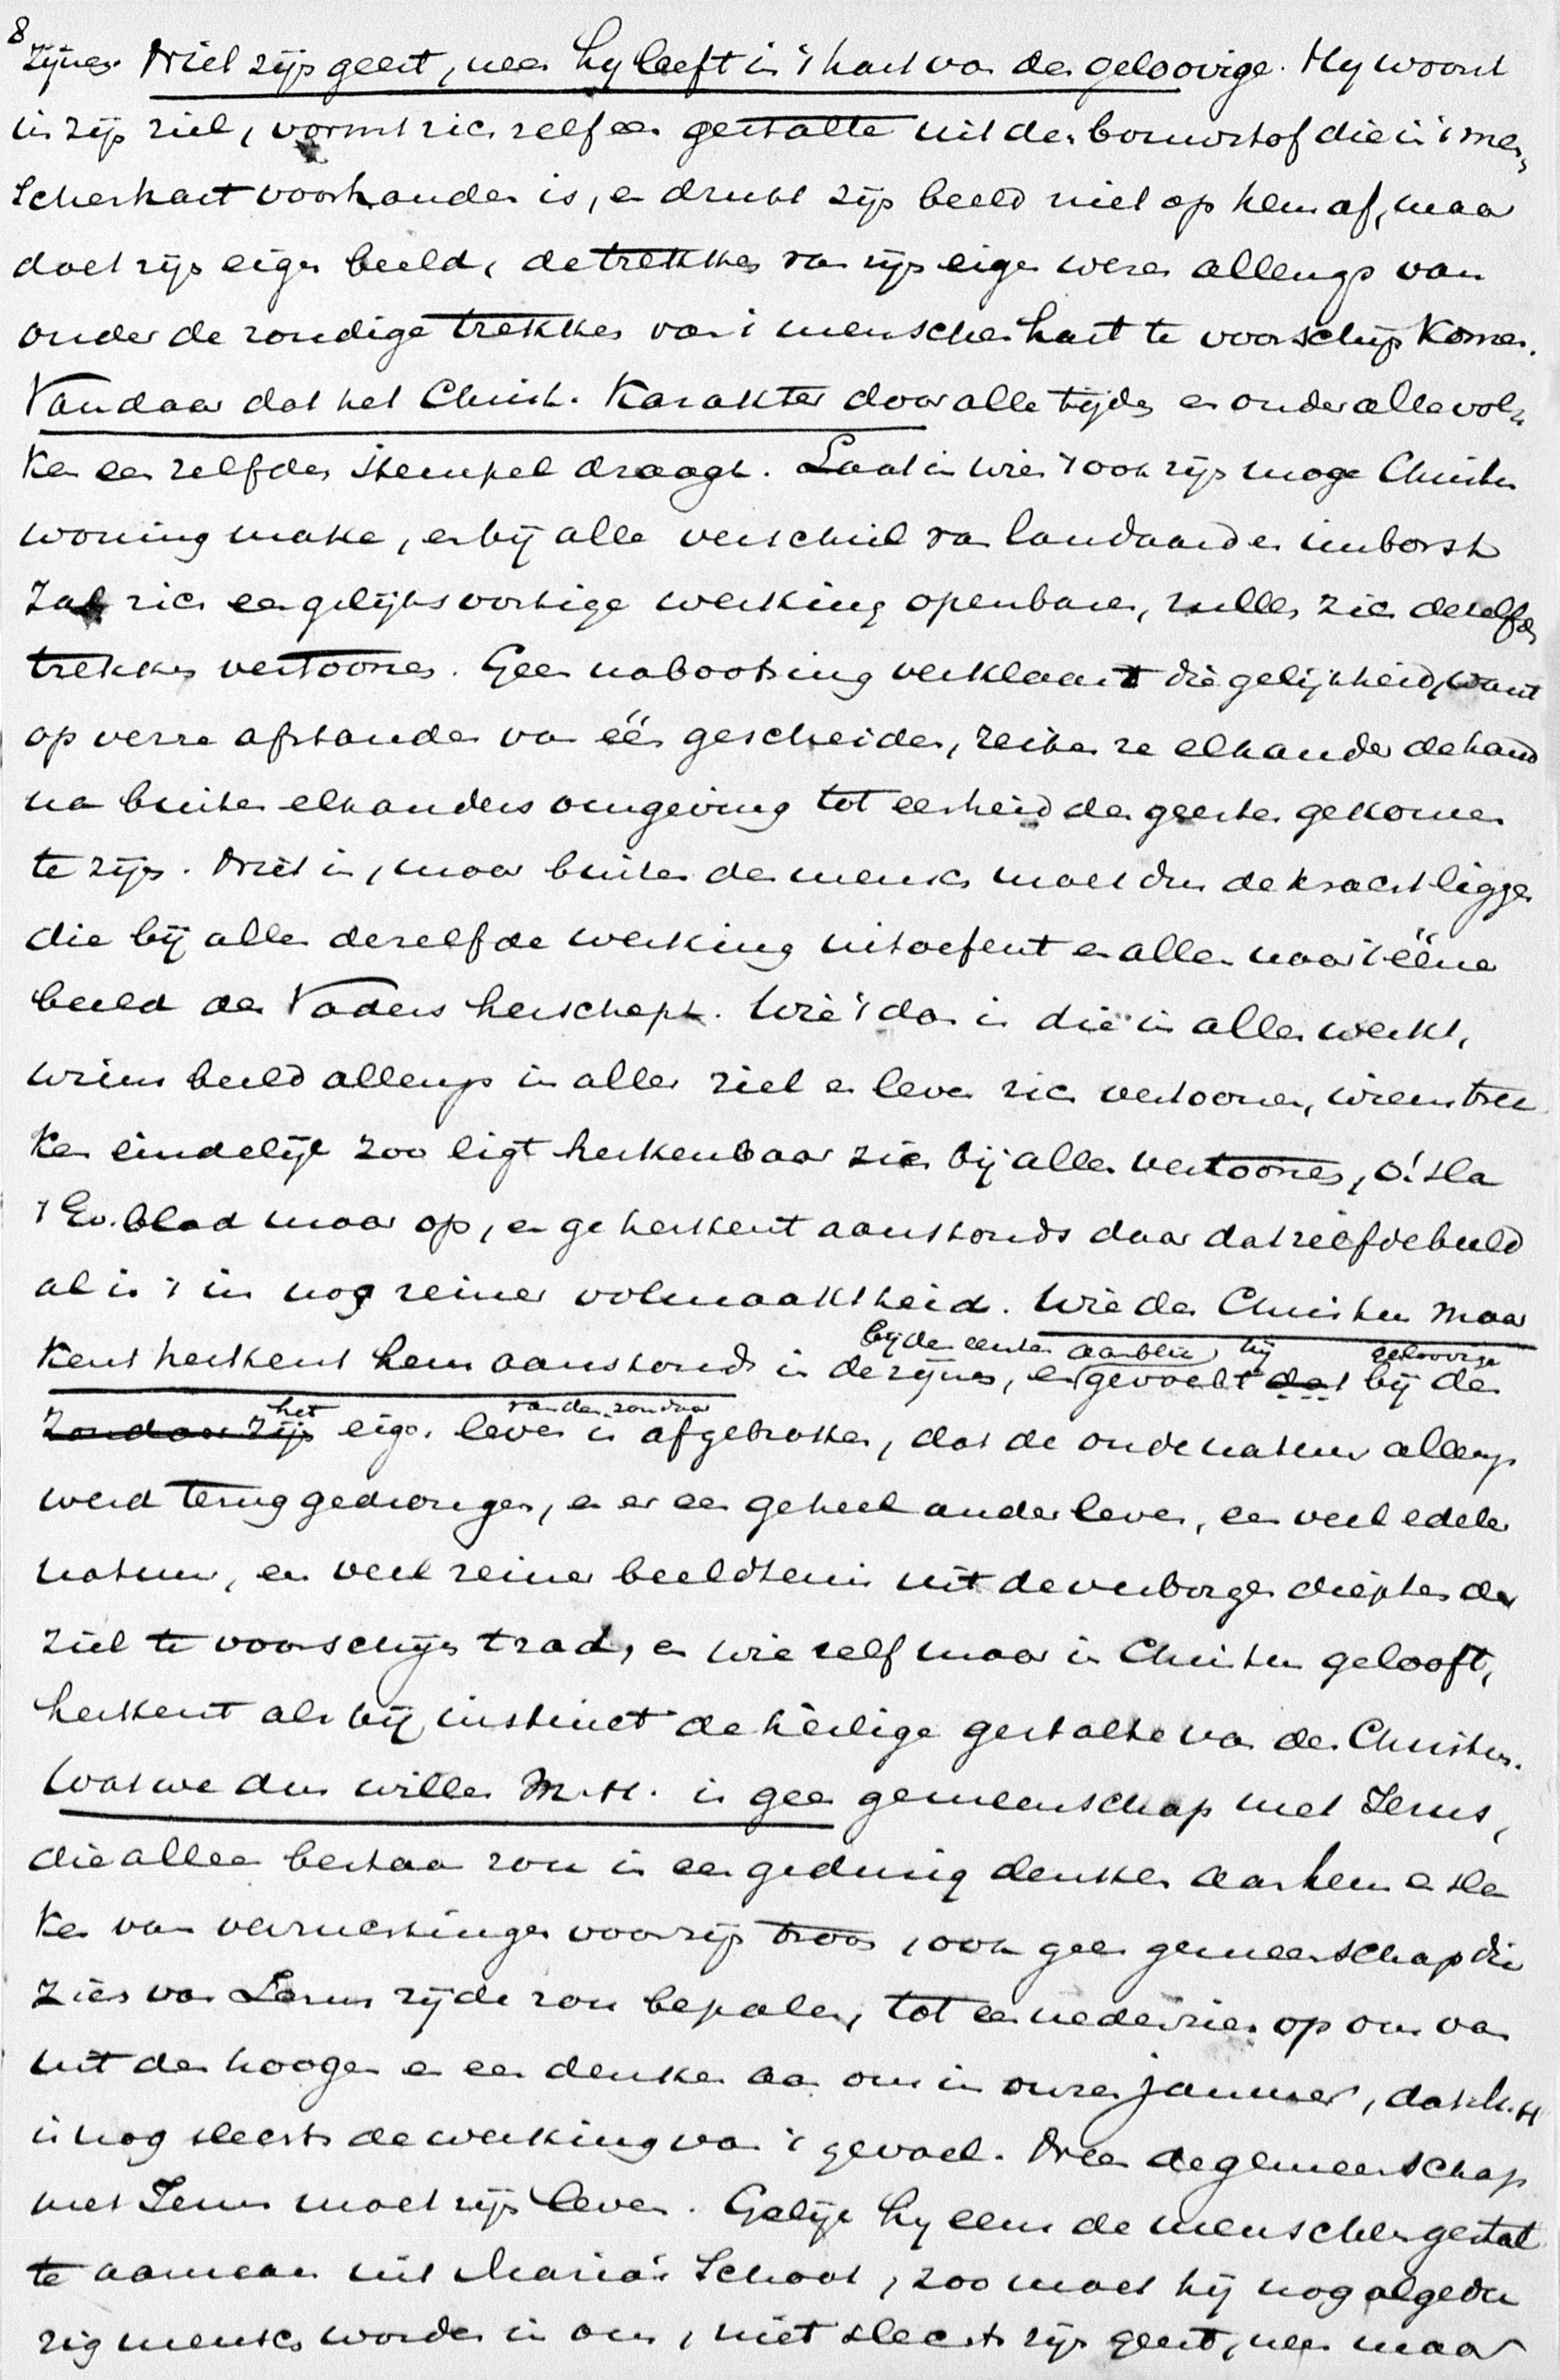 8
Zijnen. Niet zijn geest, neen hy leeft in 't hart van den geloovige. Hy woont
in zijn ziel, vormt zich zelf een gestalte uit den bouwstof die in 't men-
schenhart voorhanden is, en drukt zijn beeld niet op hem af, maar
doet zijn eigen beeld, de trekken van zijn eigen wezen allengs van
onder de zondige trekken van 't menschenhart te voorschijn komen.
Vandaar dat het Christ. karakter door alle tijden en onder alle vol-
ken een zelfden stempel draagt. Laat in wien 't ook zijn moge Christus
woning maken, en bij alle verschil van landaard en inborst
zal zich een gelijksoortige werking openbaren, zullen zich dezelfde
trekken vertoonen. Geen nabootsing verklaart die gelijkheid, want
op verre afstanden van één gescheiden, reiken ze elkander de hand
na buiten elkanders omgeving tot eenheid des geestes gekomen
te zijn. Niet in, maar buiten den mensch moet dus de kracht liggen
die bij allen dezelfde werking uitoefent en allen naar 't ééne
beeld des Vaders herschept. Wie 't dan is die in allen werkt,
wiens beeld allengs in aller ziel en leven zich vertoonen, wiens trek-
ken eindelijk zoo ligt herkenbaar zich bij allen vertoonen, o! sla
't Ev. blad maar op, en ge herkent aanstonds daar datzelfde beeld
al is 't in nog reiner volmaaktheid. Wie den Christus maar
kent herkent hem aanstonds in de zijnen, en bij den eersten aanblik gevoelt hij dat bij den geloovige
zondaar zijn het eigen leven van den zondaar is afgebroken, dat de oude natuur allengs
werd teruggedrongen, en er een geheel ander leven, een veel edeler
natuur, een veel reiner beeldtenis uit de verborgen diepten der
ziel te voorschijn trad, en wie zelf maar in Christus gelooft,
herkent als bij instinct de heilige gestalte van den Christus.
Wat we dus willen M.H. is geen gemeenschap met Jezus,
die alleen bestaan zou in een gedurig denken aan hem en sla-
ken van verzuchtingen voor zijn troon, ook geen gemeenschap die
zich van Jezus zijde zou bepalen, tot een nederzien op ons van
uit den hoogen en een denken aan ons in onzen jammer, dat M.H
is nog slechts de werking van 't gevoel. Neen de gemeenschap
met Jezus moet zijn leven. Gelijk hy eens de menschengestal
te aannam uit Maria's schoot, zoo moet hij nog algedu
rig mensch worden in ons, niet slechts zijn geest, neen maar